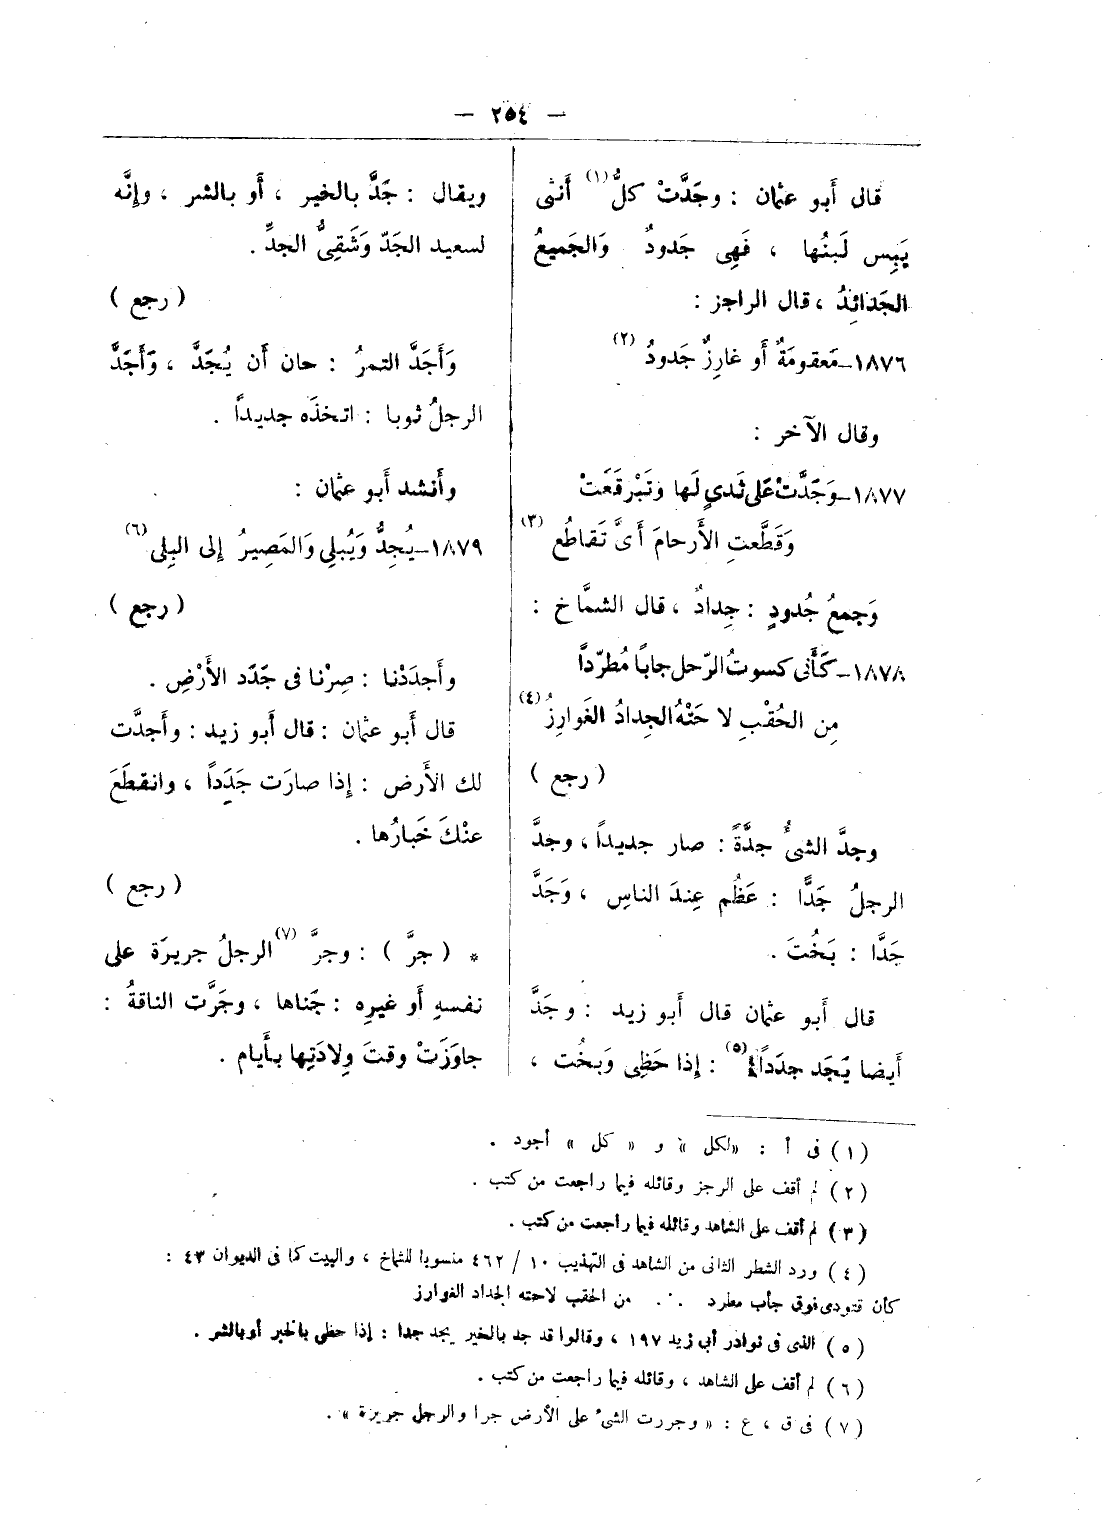 — ٢٥٤ —
قال أَبو عثمان : وجَدَّتْ كلُّ(١) أُنثى
يَبِس لَبنُها ، فَهِى جَدودٌ وَالجَميعُ
الجَدَائِدُ ، قال الراجز :
١٨٧٦ــ مَعقومَةٌ أَو غارِزٌ جَدودُ(٢)
وقال الآخر :
١٨٧٧ــ وَجَدَّتْ عَلى ثَدىٍ لَها وتَبْرقَعَتْ
وَقَطَّعتِ الأَرحامَ أَىَّ تَقاطُع(٣)
وَجمعُ جُدودٍ : جِدادٌ ، قال الشمَّاخ :
١٨٧٨ــ كَأَنى كسوتُ الرّحل جابًا مُطرّدًا
مِن الحُقْبِ لا حَتْهُ الجِدادُ الغَوارِزُ(٤)
( رجع )
وجدَّ الشىُّ جدَّةً : صار جديداً ، وجدَّ
الرجلُ جَدًّا : عَظُم عِندَ الناسِ ، وَجَدَّ
جَدَّا : بَخُتَ .
قال أَبو عثمان قال أَبو زيد : وجَدَّ
أَيضا يَجَد جدَداً(٥) : إِذا حَظِى وَبخُت ،
ويقال : جَدَّ بالخير ، أَو بالشر ، وإِنَّه
لسعيد الجَدّ وَشَقِىُّ الجدِّ .
( رجع )
وَأَجَدَّ التمرُ : حان أَن يُجَدَّ ، وَأَجَدَّ
الرجلُ ثوبا : اتخذَه جديداً .
وأَنشد أَبو عثمان :
١٨٧٩ــ يُجِدُّ وَيُبلِى وَالمَصِيرُ إِلى البِلِى(٦)
( رجع )
وأَجدَدْنا : صِرْنا فى جَدَد الأَرْضِ .
قال أَبو عثمان : قال أَبو زيد : وأَجدَّت
لك الأَرض : إِذا صارَت جَدَداً ، وانقطَعَ
عنْكَ خَبارُها .
( رجع )
* ( جرَّ ) : وجرَّ(٧) الرجلُ جريرَة على
نفسهِ أَو غيرِه : جَناها ، وجَرَّت الناقةُ :
جاوَزَتْ وقتَ وِلادَتِها بأَيام .
(١) فى أ : «لكل» و « كل » أجود .
(٢) لم أقف على الرجز وقائله فيما راجعت من كتب .
(٣) لم أقف على الشاهد وقائله فيما راجعت من كتب .
(٤) ورد الشطر الثانى من الشاهد فى التهذيب ١٠ / ٤٦٢ منسوبا للشماخ ، والبيت كما فى الديوان ٤٣ :
كأن قتودى فوق جأب مطرد .˙. من الحقب لاحته الجداد الغوارز
(٥) الذى فى نوادر أبى زيد ١٩٧ ، وقالوا قد جد بالخير يجد جدا : إذا حظى بالخير أو بالشر .
(٦) لم أقف على الشاهد ، وقائله فيما راجعت من كتب .
(٧) فى ق ، ع : « وجررت الشىء على الأرض جرا والرجل جريرة » .